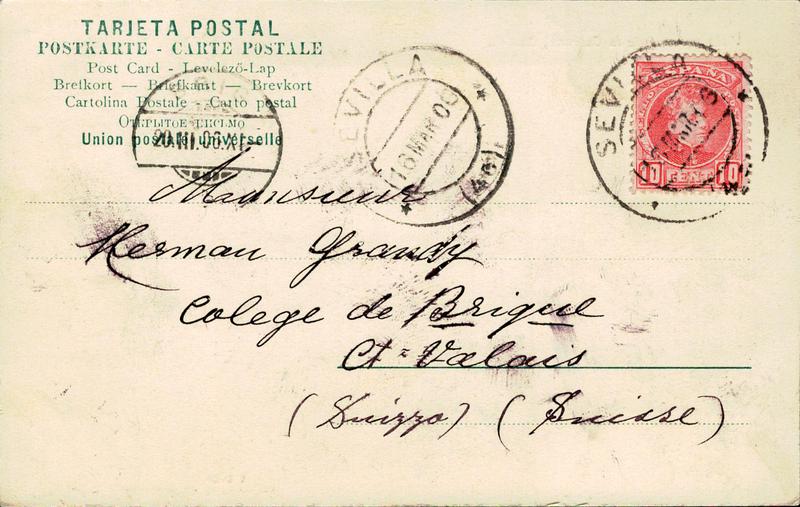 TARJETA POSTAL
POSTKARTE - CARTE POSTALE
Post Card - Levelező-Lap
Brefkort — Briefkaart — Brevkort
Cartolina Postale - Carto postal
Union postale universelle
20.III.06.X
SEVILLA
16 MAR 06
SEVILLA
ESPAÑA
10 CENT 10
Monsieur
Herman Grandy
Colege de Brigue
Ct = Valais
(Suizzo) (Suisse)